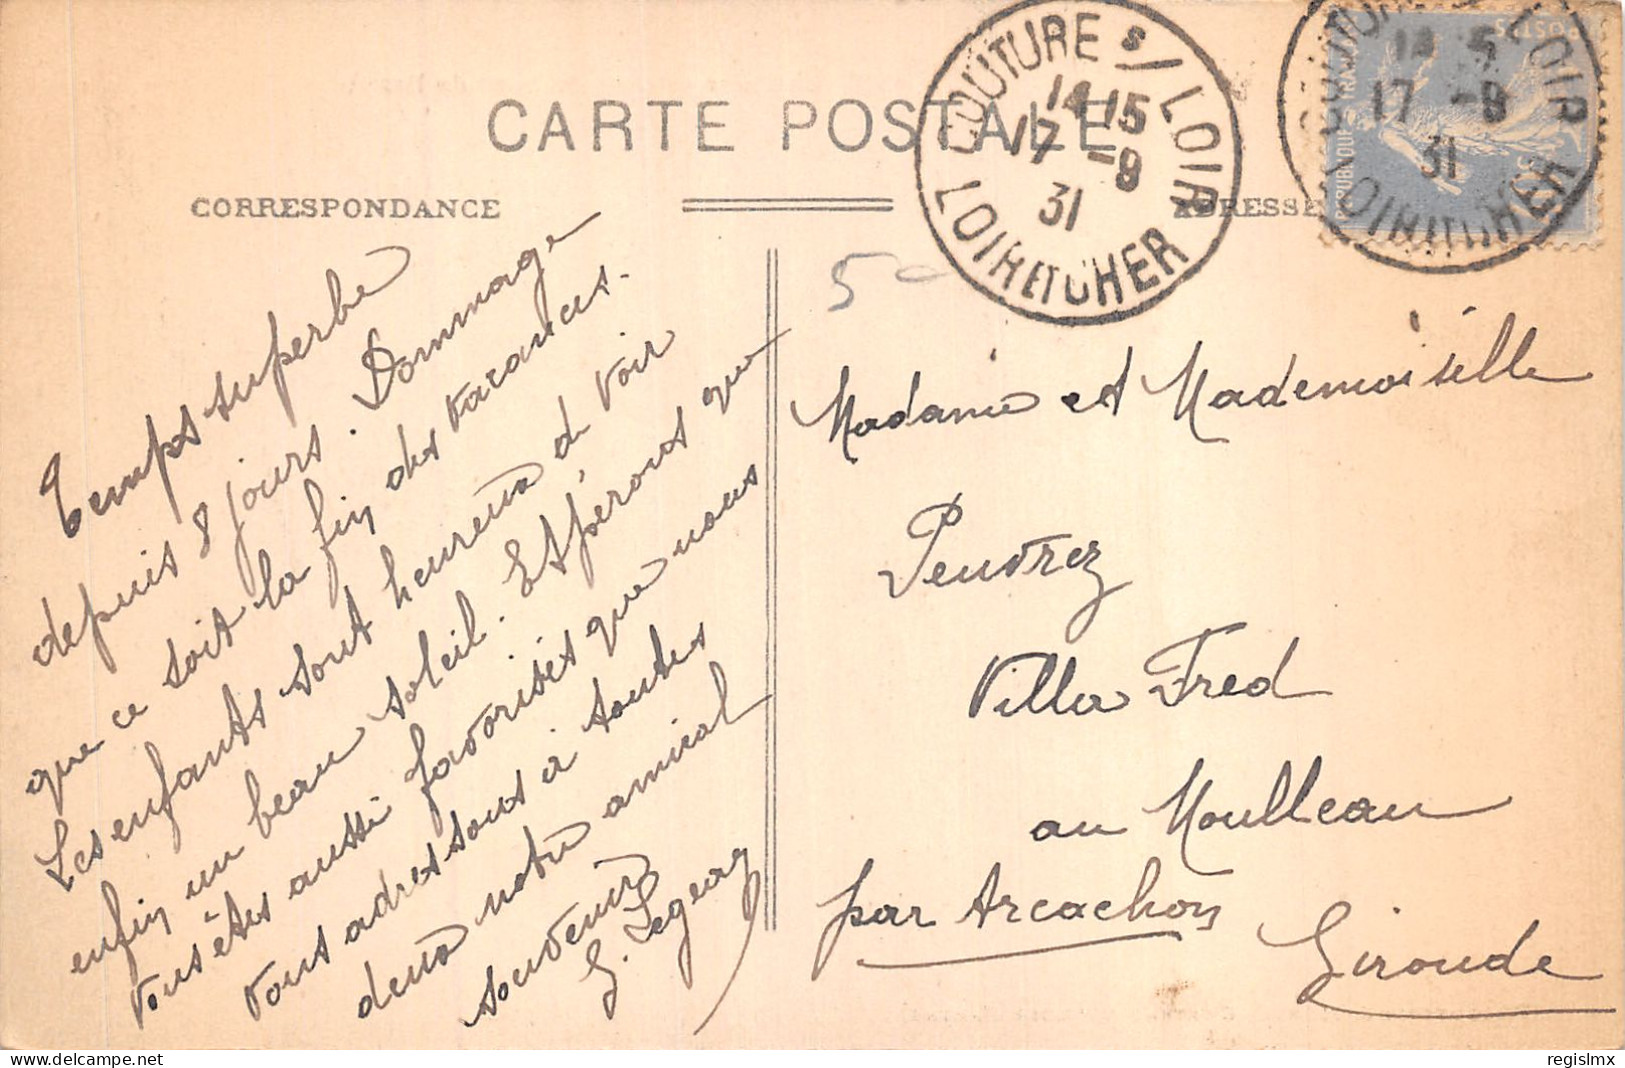 CARTE POSTALE
CORRESPONDANCE
ADRESSE
COUTURE s/ LOIR
14 15
17 -9
31
LOIR ET CHER
14 5
17 -9
31
LOIR ET CHER
POSTES
5
Temps superbe
depuis 8 jours. Dommage
que ce soit la fin des vacances.
Les enfants sont heureux de voir
enfin un beau soleil. Espérons que
vous êtes aussi favorisés que nous
Vous adressons à toutes
deux notre amical
souvenir
G. Legeay
Madame et Mademoiselle
Peuvrez
Villa Fred
au Moulleau
par Arcachon
Gironde
delcampe.net
regislmx